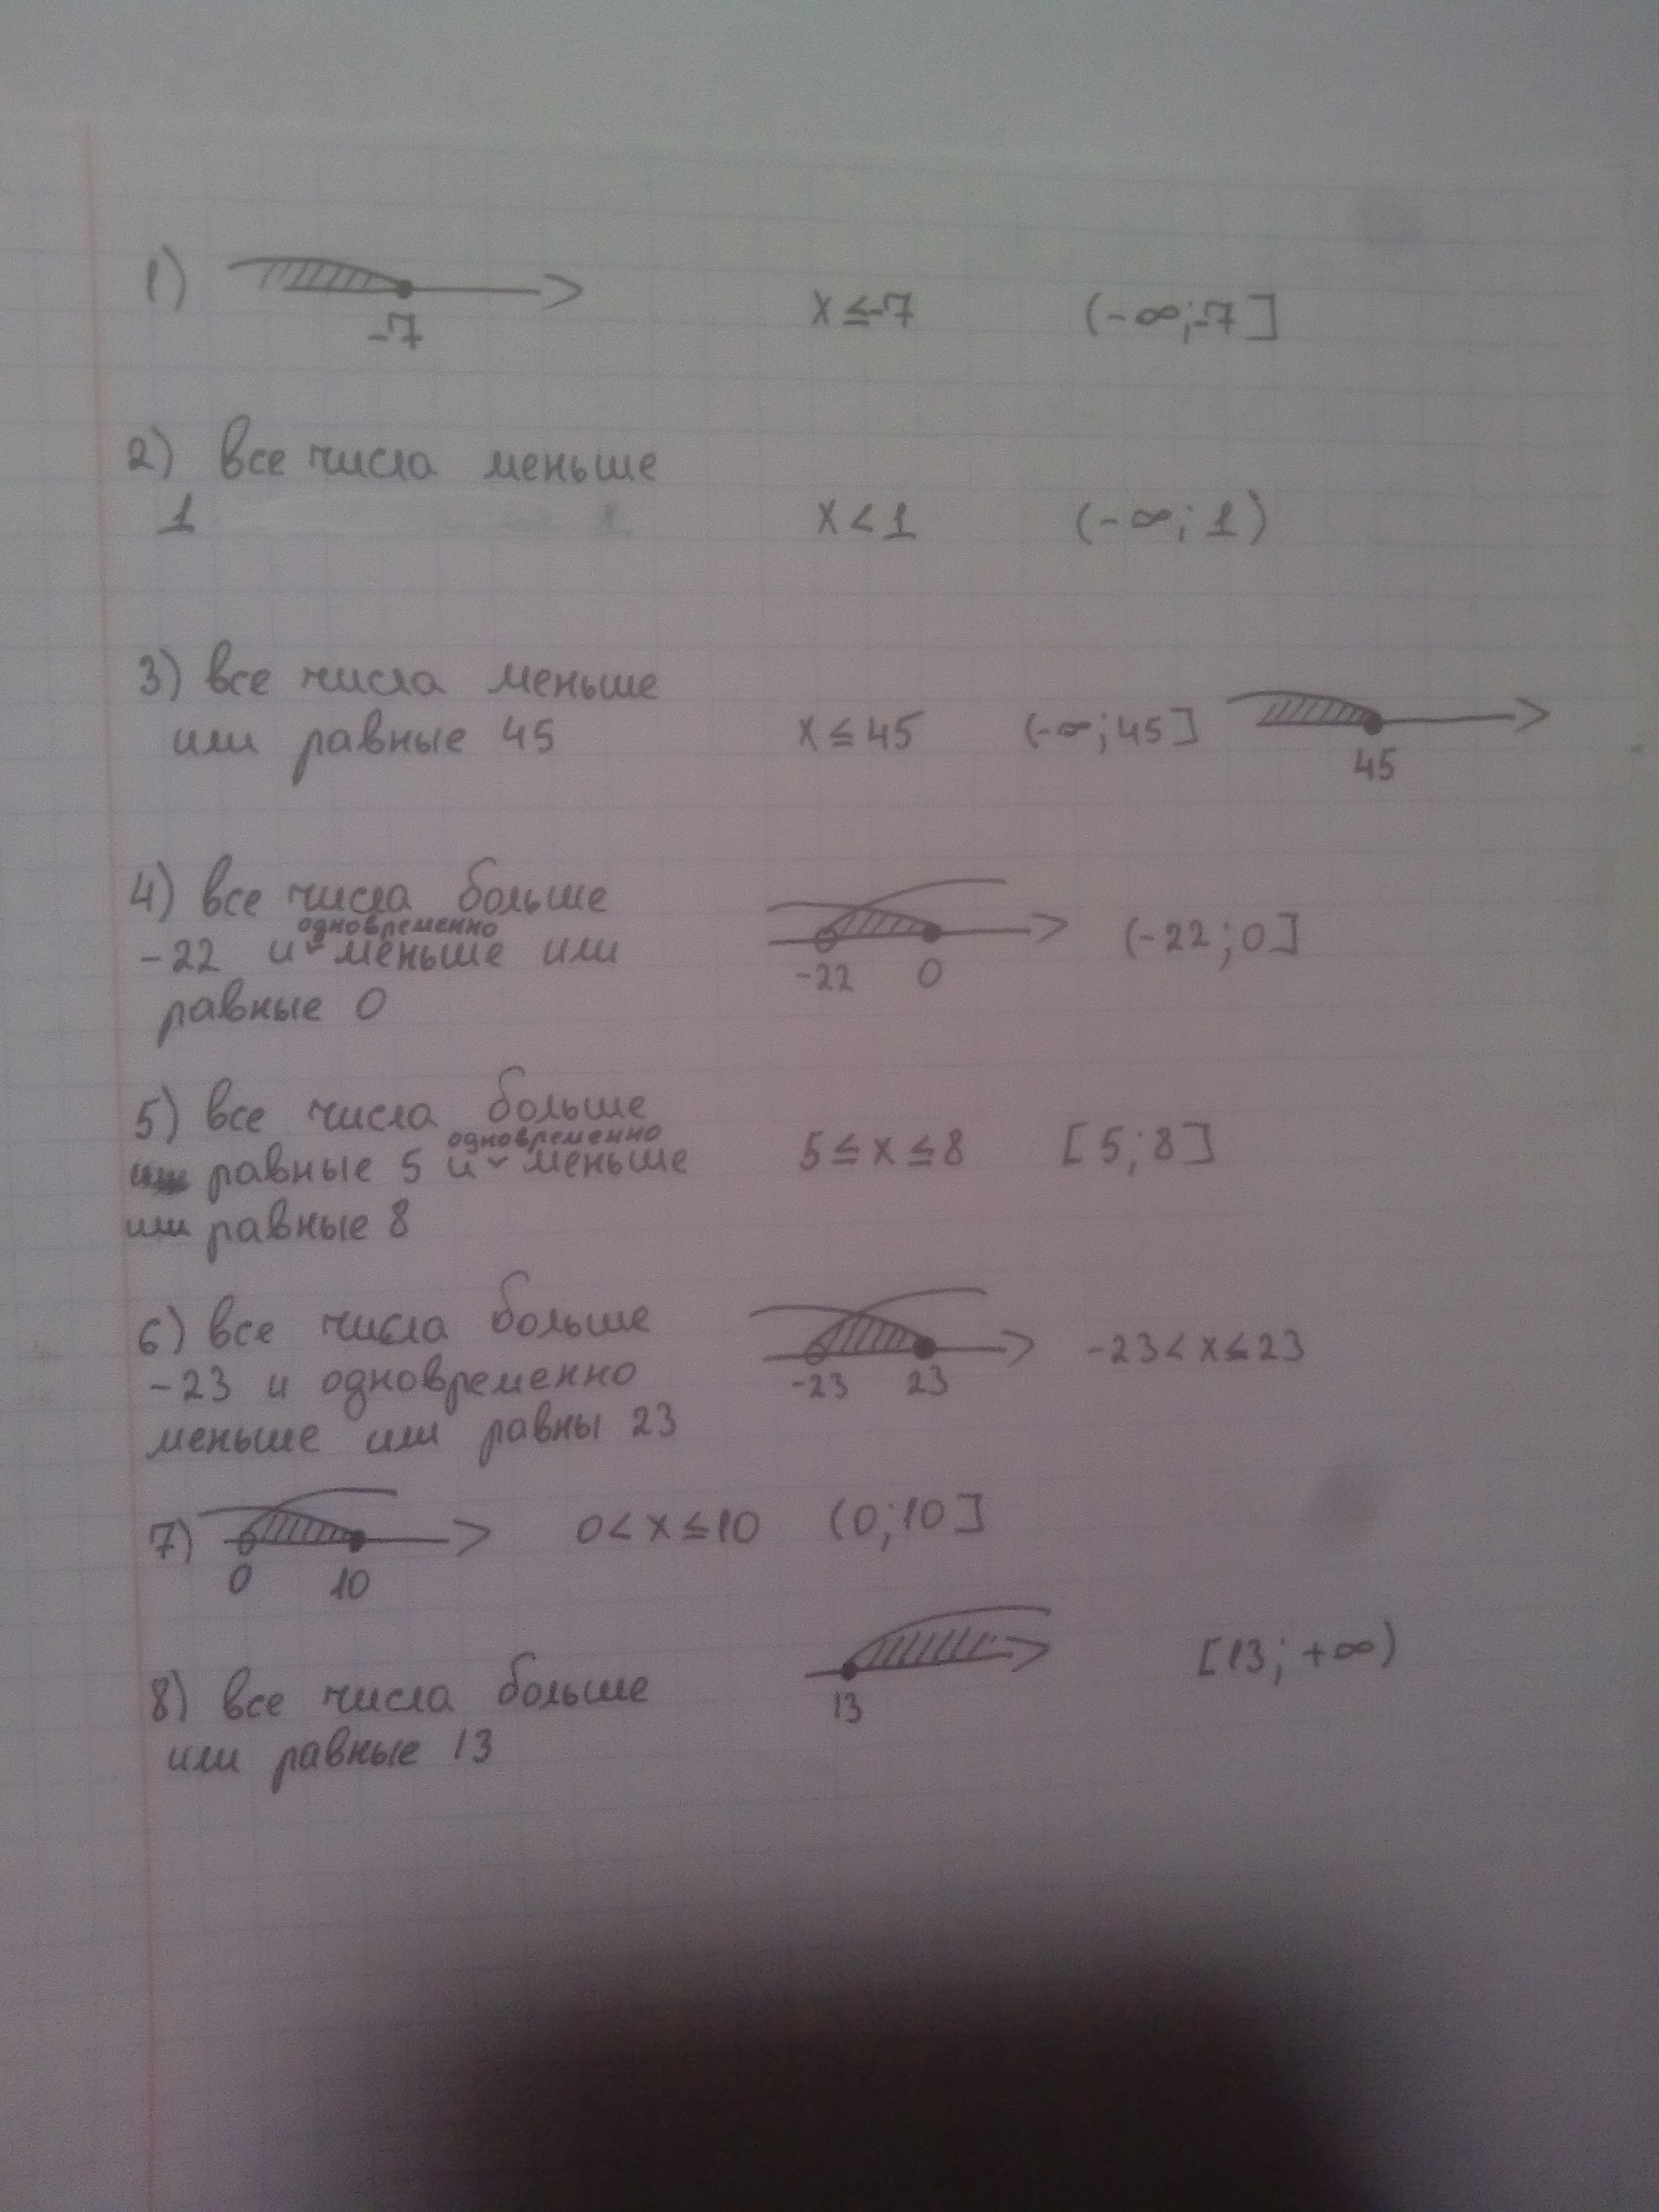 1) -7 x ≤ -7 (-∞; -7]
2) все числа меньше
1 x < 1 (-∞; 1)
3) все числа меньше
или равные 45 x ≤ 45 (-∞; 45] 45
4) все числа больше
одновременно
-22 и меньше или -22 0 (-22; 0]
равные 0
5) все числа больше
одновременно
равные 5 и меньше 5 ≤ x ≤ 8 [5; 8]
или равные 8
6) все числа больше
-23 и одновременно -23 23 -23 < x ≤ 23
меньше или равны 23
7) 0 10 0 < x ≤ 10 (0; 10]
8) все числа больше 13 [13; +∞)
или равные 13